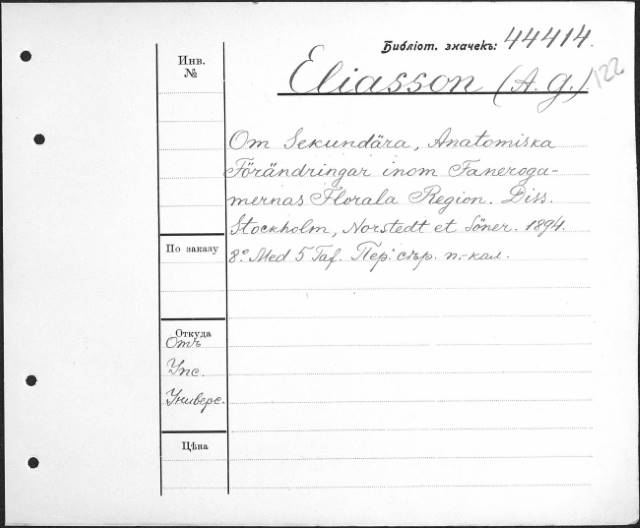 Библіот. значекъ: 44414.
122
Инв.
№
Eliasson (A. G.)
Om Sekundära, Anatomiska
Förändringar inom Faneroga-
mernas Florala Region. Diss.
Stockholm, Norstedt et Söner. 1894.
По заказу
8º. Med 5 Taf. Пер. стр. п.-кал.
Откуда
Отъ
Упс.
Универс.
Цѣна